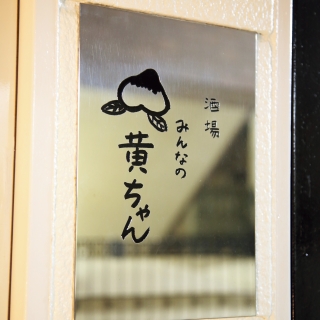 酒場
みんなの
黄ちゃん